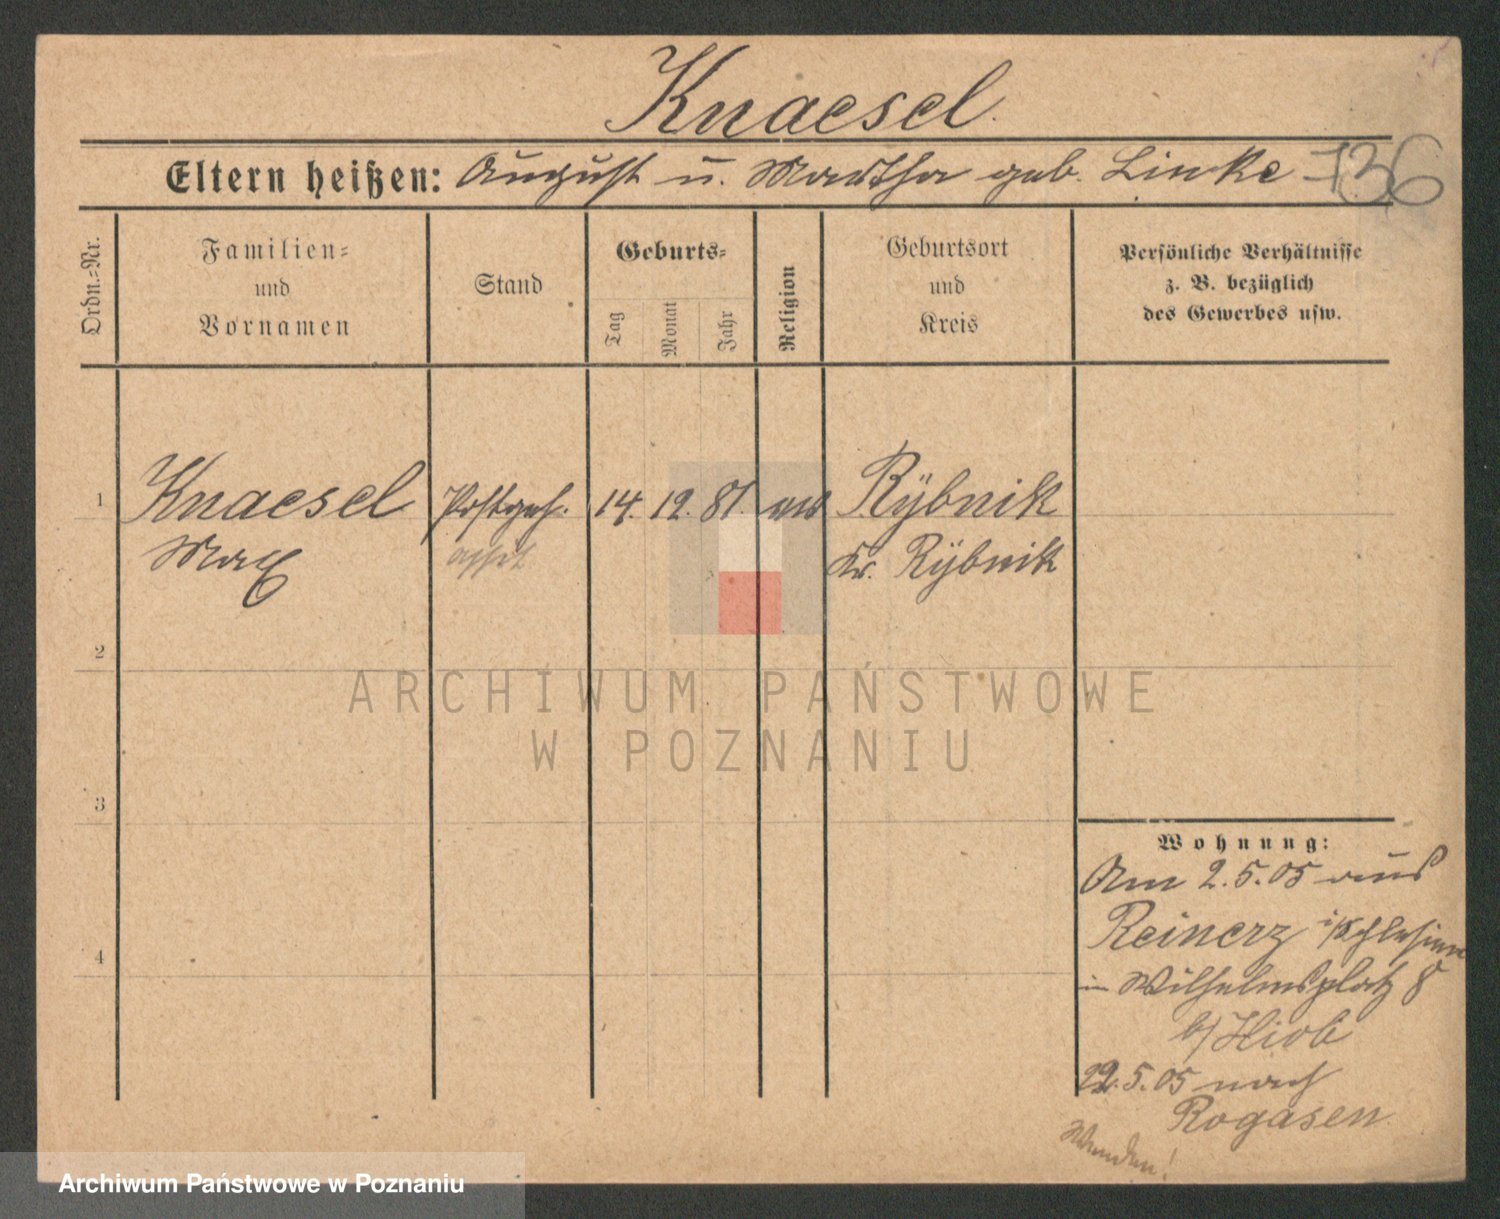 Knaesel
Eltern heißen: August u. Martha geb. Linke 136
Ordn.=Nr.
Familien= und Vornamen
Stand
Geburts=
Tag
Monat
Jahr
Religion
Geburtsort und Kreis
Persönliche Verhältnisse
z. B. bezüglich
des Gewerbes usw.
1 Knaesel Postgeh. 14. 12. 81. ev Rÿbnik
Max asst Kr. Rÿbnik
2
ARCHIWUM PAŃSTWOWE
W POZNANIU
3
4
Wohnung:
Am 2.5.05 aus
Reinerz i/Schlesien
in Wilhelmsplatz 8
b/ Hiob
22.5.05 nach
Rogasen
Wenden!
Archiwum Państwowe w Poznaniu